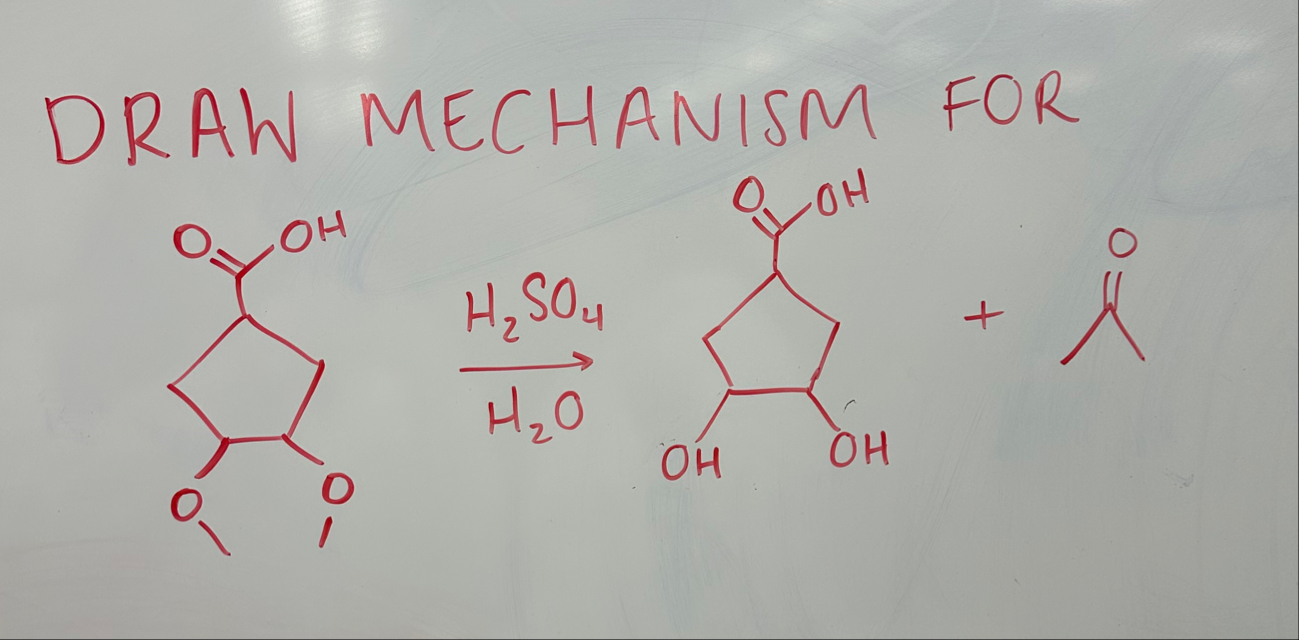 DRAW MECHANISM FOR
O OH
O O
H₂SO₄
H₂O
O OH
OH OH
+
O